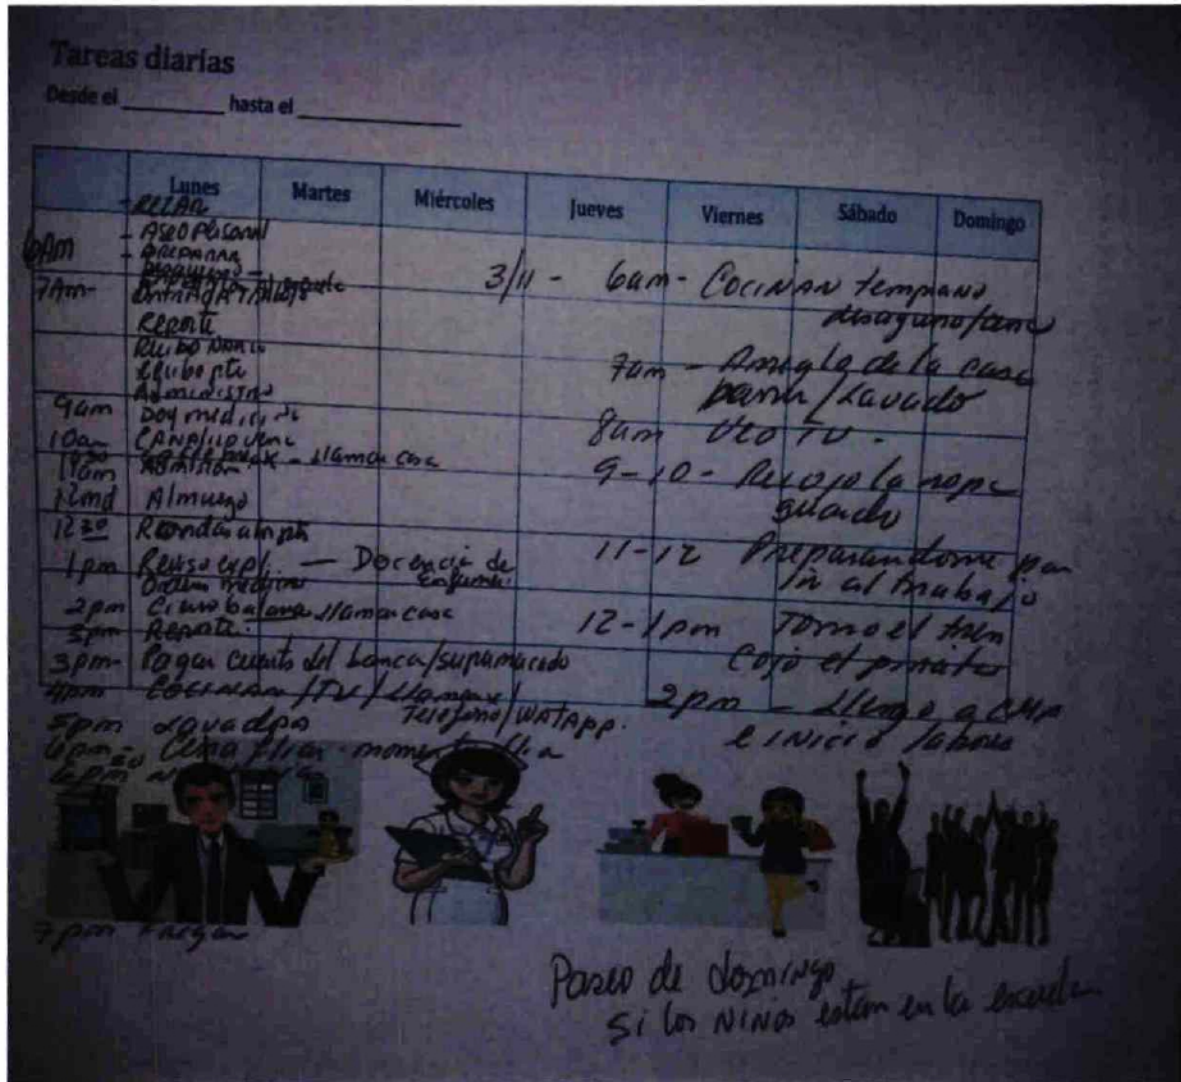 Tareas diarias
Desde el ________ hasta el ____________
Lunes Martes Miércoles Jueves Viernes Sábado Domingo
- REZAR
6Am - Aseo Personal
- PREPARAR
Desayuno -
7Am-
Reporte
Recibo
Administro
9am Doy medici
10am
11am Admisión - Llamar casa
12md Almuerzo
12 30 Rondas
1pm Reviso expl. — Docencia de
Orden medica Enferme.
2pm Cierro balance Llamar casa
3pm Reporte.
3pm- Pagar cuents del banco/supermercado
4pm COCINAR/TV/Llamar/
Telefono/WATApp.
5pm Lavados
6pm- Cena fliar - momento
7pm Fregar
3/11 - 6am - COCINAR temprano
desayuno/cena
7am - Arreglo de la casa
barrer/Lavado
8am VEO TV.
9-10 - Recojo la ropa
guardo
11-12 Preparandome para
ir al trabajo
12-1pm Tomo el tren
Cojo el
2pm - Llego a CMP
e INICIO labores
Paseo de domingo
si los NIÑOS estan en la escuela